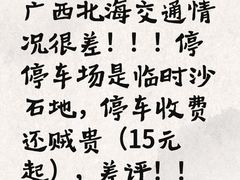 广西北海交通情
况很差！！！停
停车场是临时沙
石地，停车收费
还贼贵（15元
起），差评！！